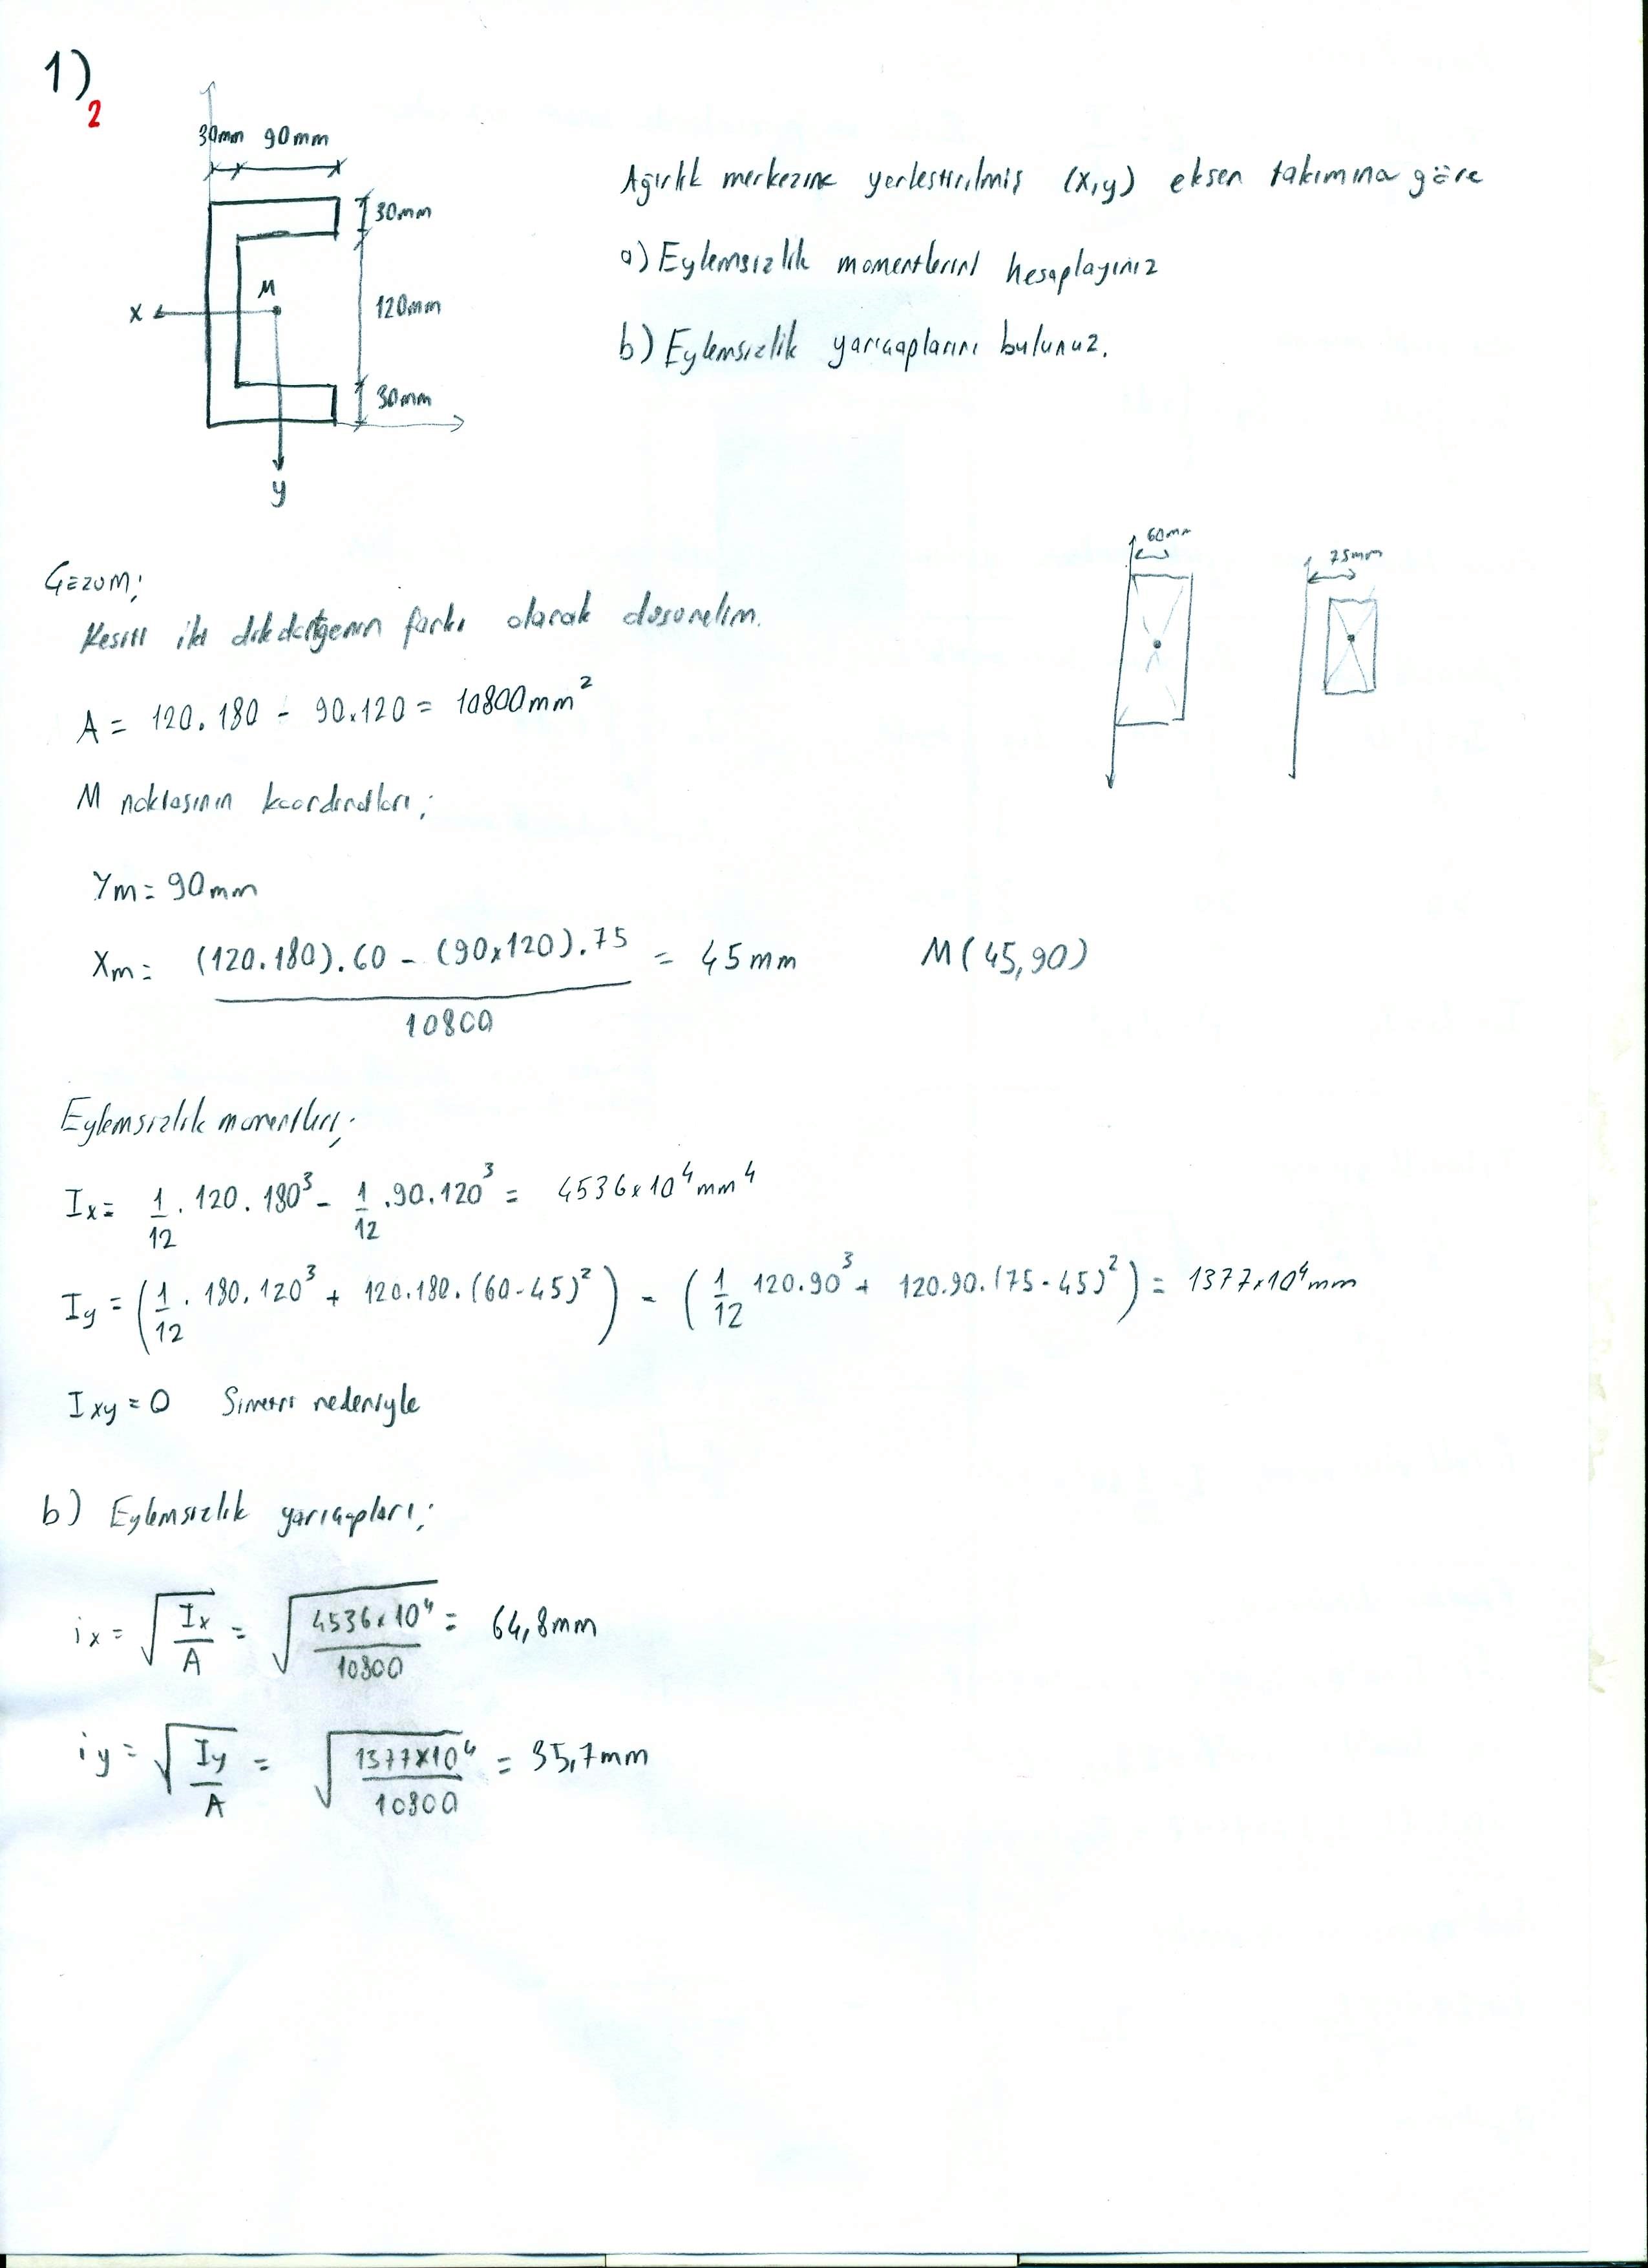 1)
2
30mm 90mm
30mm
M
x
120mm
30mm
y
Ağırlık merkezine yerleştirilmiş (x,y) eksen takımına göre
a) Eylemsizlik momentlerini hesaplayınız
b) Eylemsizlik yarıçaplarını bulunuz.
60mm
75mm
Çözüm;
Kesiti iki dikdörtgenin farkı olarak düşünelim.
A = 120.180 - 90.120 = 10800mm²
M noktasının koordinatları;
Ym = 90mm
Xm = (120.180).60 - (90x120).75 / 10800 = 45mm M(45,90)
Eylemsizlik momentleri;
Ix = 1/12 . 120. 180³ - 1/12 .90.120³ = 4536x10⁴mm⁴
Iy = (1/12 . 180.120³ + 120.180.(60-45)²) - (1/12 120.90³ + 120.90.(75-45)²) = 1377x10⁴mm
Ixy = 0 Simetri nedeniyle
b) Eylemsizlik yarıçapları;
ix = √(Ix/A) = √(4536x10⁴/10800) = 64,8mm
iy = √(Iy/A) = √(1377x10⁴/10800) = 35,7mm